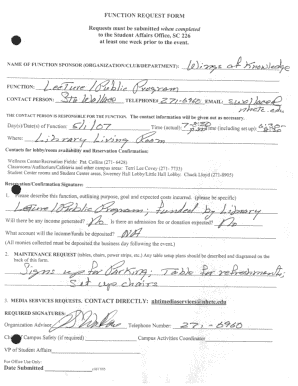 FUNCTION REQUEST FORM
Requests must be submitted when completed
to the Student Affairs Office, SC 226
at least one week prior to the event.
NAME OF FUNCTION SPONSOR (ORGANIZATION/CLUB/DEPARTMENT): Wings of Knowledge
FUNCTION: Lecture/Public Program
CONTACT PERSON: Sta Wallace TELEPHONE: 271-6960 EMAIL: swallace@
nhctc.edu
THE CONTACT PERSON IS RESPONSIBLE FOR THE FUNCTION. The contact information will be given out as necessary.
Day(s)/Date(s) of Function: 6/1/07 Time (actual) 7-8:30 pm Time (including set up) 6:30-
Where: Library Living Room
Contacts for lobby/room availability and Reservation Confirmation:
Wellness Center/Recreation Fields: Pat. Collins (271-6428)
Classrooms/Auditorium/Cafeteria and other campus areas: Terri Lee Covey (271-
Student Center rooms and Student Center areas, Sweeney Hall Lobby/Little Hall Lobby: Chuck Lloyd (271-8965)
Reservation/Confirmation Signature:
1. Please describe this function, outlining purpose, goal and expected costs incurred. (please be specific)
Lecture/Public Programs; funded by Library
Will there be any income generated? No Is there an admission fee or donation expected? No
What account will the income/funds be deposited? NA
(All monies collected must be deposited the business day following the event.)
2. MAINTENANCE REQUEST (tables, chairs, power strips, etc.) Any table setup desired should be described and diagramed on the
back of this form.
Signs up for Parking; Table for refreshments;
Set up chairs
3. MEDIA SERVICES REQUESTS. CONTACT DIRECTLY: nhtimediaservices@nhctc.edu
REQUIRED SIGNATURES:
Organization Advisor: Telephone Number 271-6960
of Campus Safety (if required) Campus Activities Coordinator
VP of Student Affairs
For Office Use Only:
Date Submitted